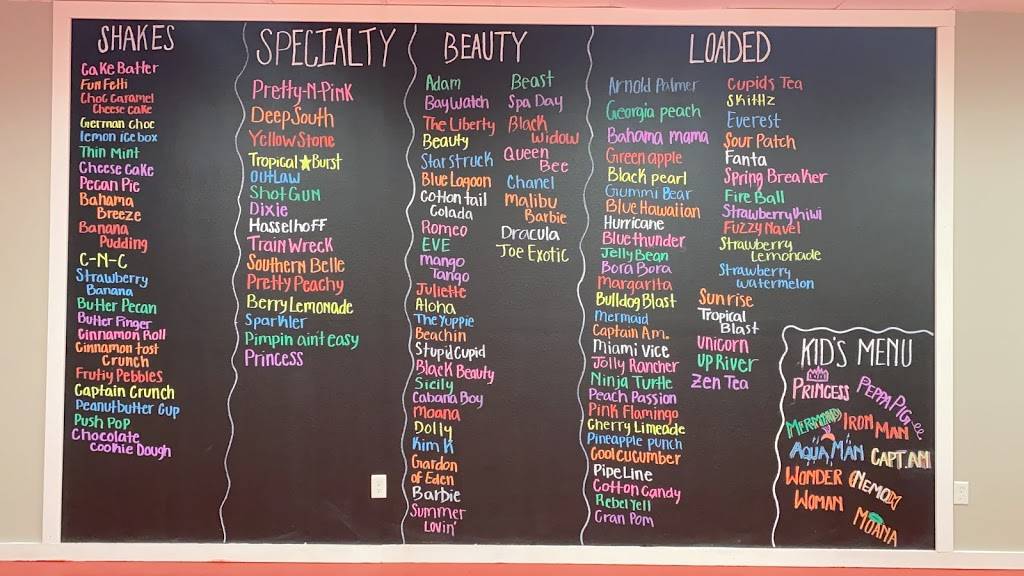 SHAKES
Cake Batter
Fun Fetti
Choc Caramel
Cheese Cake
German Choc
lemon ice box
Thin Mint
Cheese Cake
Pecan Pie
Bahama
Breeze
Banana
Pudding
C-N-C
Strawberry
Banana
Butter Pecan
Butter Finger
Cinnamon Roll
Cinnamon tost
Crunch
Fruity Pebbles
Captain Crunch
Peanutbutter Cup
Push Pop
Chocolate
Cookie Dough
SPECIALTY
Pretty-N-Pink
Deep South
Yellow Stone
Tropical Burst
OUTLAW
Shot GUN
Dixie
Hasselhoff
Train Wreck
Southern Belle
Pretty Peachy
Berry Lemonade
Sparkler
Pimpin aint easy
Princess
BEAUTY
Adam
Bay Watch
The Liberty
Beauty
Star struck
Blue Lagoon
Cotton tail
Colada
Romeo
EVE
mango
Tango
Juliette
Aloha
The Yuppie
Beachin
Stupid Cupid
Black Beauty
Sicily
Cabana Boy
moana
Dolly
Kim K
Garden
of Eden
Barbie
Summer
Lovin'
Beast
Spa Day
Black
Widow
Queen
Bee
Chanel
malibu
Barbie
Dracula
Joe Exotic
LOADED
Arnold Palmer
Georgia peach
Bahama mama
Green apple
Black pearl
Gummi Bear
Blue Hawaiian
Hurricane
Blue thunder
Jelly Bean
Bora Bora
Margarita
Bulldog Blast
mermaid
Captain Am.
Miami Vice
Jolly Rancher
Ninja Turtle
Peach Passion
Pink Flamingo
Cherry Limeade
Pineapple punch
Cool cucumber
Pipe Line
Cotton Candy
Rebel Yell
Gran Pom
Cupids Tea
Skittlz
Everest
Sour Patch
Fanta
Spring Breaker
Fire Ball
Strawberry kiwi
Fuzzy Navel
Strawberry
Lemonade
Strawberry
watermelon
Sunrise
Tropical
Blast
unicorn
UP River
Zen Tea
KID'S MENU
PRINCESS
PEPPA PIG
MERMAID
IRON
MAN
AQUA MAN
CAPT. AM
WONDER
WOMAN
NEMO
MOANA